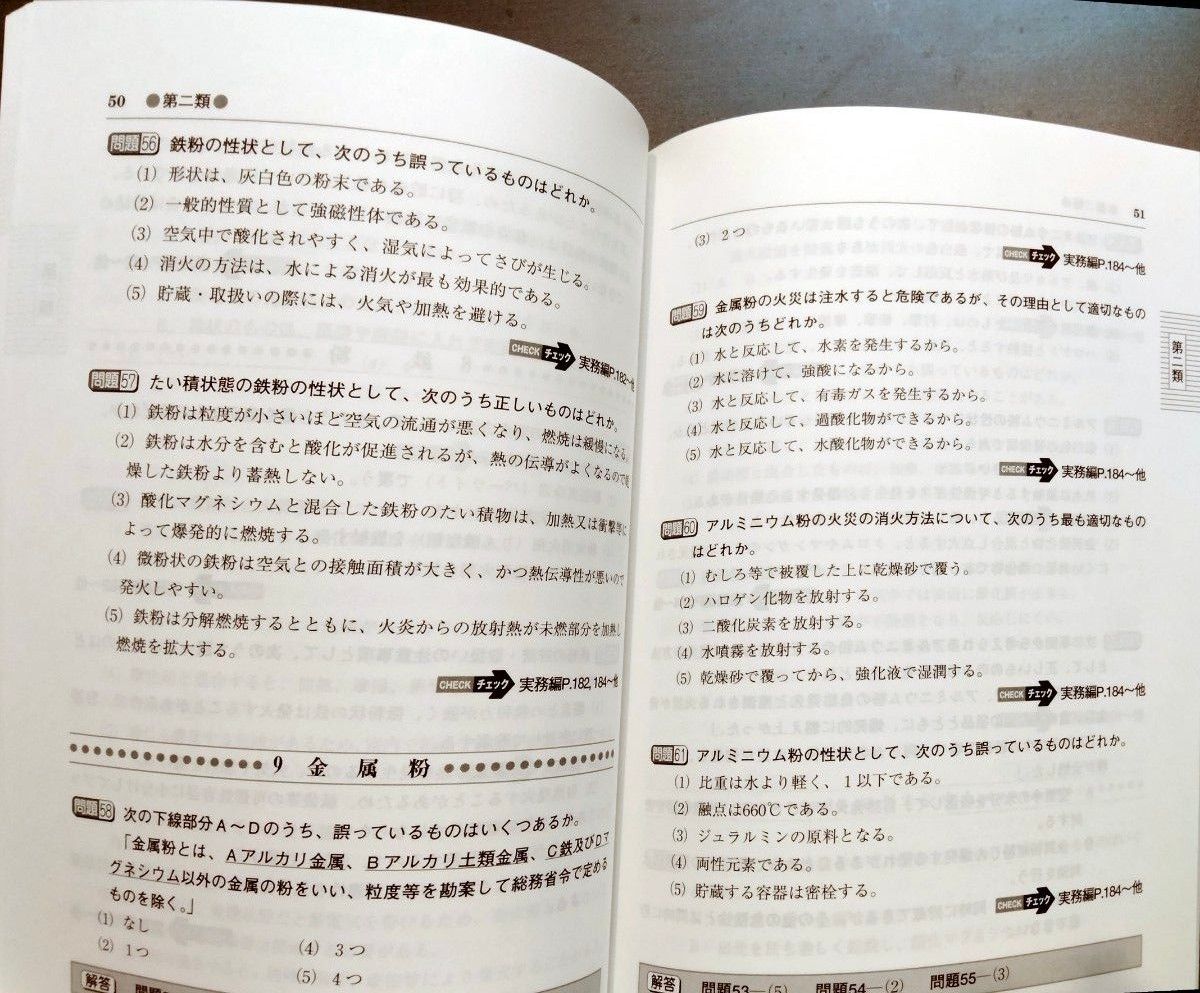 50 ●第二類●
問題56 鉄粉の性状として、次のうち誤っているものはどれか。
(1) 形状は、灰白色の粉末である。
(2) 一般的性質として強磁性体である。
(3) 空気中で酸化されやすく、湿気によってさびが生じる。
(4) 消火の方法は、水による消火が最も効果的である。
(5) 貯蔵・取扱いの際には、火気や加熱を避ける。
CHECK チェック 実務編P.182～他
問題57 たい積状態の鉄粉の性状として、次のうち正しいものはどれか。
(1) 鉄粉は粒度が小さいほど空気の流通が悪くなり、燃焼は緩慢になる。
(2) 鉄粉は水分を含むと酸化が促進されるが、熱の伝導がよくなるので乾
燥した鉄粉より蓄熱しない。
(3) 酸化マグネシウムと混合した鉄粉のたい積物は、加熱又は衝撃等に
よって爆発的に燃焼する。
(4) 微粉状の鉄粉は空気との接触面積が大きく、かつ熱伝導性が悪いので
発火しやすい。
(5) 鉄粉は分解燃焼するとともに、火炎からの放射熱が未燃部分を加熱し
燃焼を拡大する。
CHECK チェック 実務編P.182, 184～他
9 金属粉
問題58 次の下線部分A～Dのうち、誤っているものはいくつあるか。
「金属粉とは、Aアルカリ金属、Bアルカリ土類金属、C鉄及びDマ
グネシウム以外の金属の粉をいい、粒度等を勘案して総務省令で定める
ものを除く。」
(1) なし
(2) 1つ
(4) 3つ
(5) 4つ
解答
51
(3) 2つ
CHECK チェック 実務編P.184～他
問題59 金属粉の火災は注水すると危険であるが、その理由として適切なもの
は次のうちどれか。
(1) 水と反応して、水素を発生するから。
(2) 水に溶けて、強酸になるから。
(3) 水と反応して、有毒ガスを発生するから。
(4) 水と反応して、過酸化物ができるから。
(5) 水と反応して、水酸化物ができるから。
CHECK チェック 実務編P.184～他
問題60 アルミニウム粉の火災の消火方法について、次のうち最も適切なもの
はどれか。
(1) むしろ等で被覆した上に乾燥砂で覆う。
(2) ハロゲン化物を放射する。
(3) 二酸化炭素を放射する。
(4) 水噴霧を放射する。
(5) 乾燥砂で覆ってから、強化液で湿潤する。
CHECK チェック 実務編P.184～他
問題61 アルミニウム粉の性状として、次のうち誤っているものはどれか。
(1) 比重は水より軽く、1以下である。
(2) 融点は660℃である。
(3) ジュラルミンの原料となる。
(4) 両性元素である。
(5) 貯蔵する容器は密栓する。
CHECK チェック 実務編P.184～他
解答 問題53―(5) 問題54―(2) 問題55―(3)
第二類